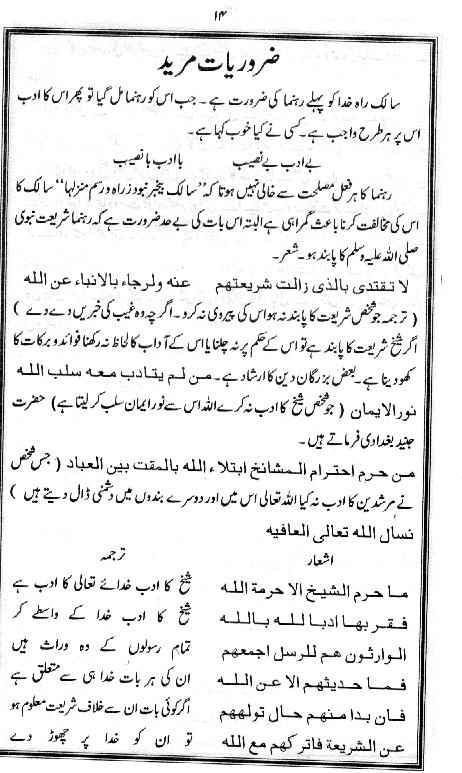 ۱۴
ضروریات مرید
سالک راہ خدا کو پہلے رہنما کی ضرورت ہے۔ جب اس کو رہنما مل گیا تو پھر اس کا ادب
اس پر ہر طرح واجب ہے۔ کسی نے کیا خوب کہا ہے۔
بے ادب بے نصیب باادب بانصیب
رہنما کا ہر فعل مصلحت سے خالی نہیں ہوتا کہ ’’سالک بیخبر نبود ز راہ و رسم منزلہا‘‘ سالک کا
اس کی مخالفت کرنا باعث گمراہی ہے البتہ اس بات کی بے حد ضرورت ہے کہ رہنما شریعت نبوی
صلی اللہ علیہ وسلم کا پابند ہو۔ شعر۔
لا تقتدی بالذی زالت شریعتھم عنہ ولرجاء بالانباء عن اللہ
( ترجمہ جو شخص شریعت کا پابند نہ ہو اس کی پیروی نہ کرو۔ اگر چہ وہ غیب کی خبریں دے دے )
اگر شیخ شریعت کا پابند ہے تو اس کے حکم پر نہ چلنا یا اس کے آداب کا لحاظ نہ رکھنا فوائد و برکات کا
کھو دینا ہے۔ بعض بزرگان دین کا ارشاد ہے۔ من لم یتادب معہ سلب اللہ
نور الایمان ( جو شخص شیخ کا ادب نہ کرے اللہ اس سے نور ایمان سلب کر لیتا ہے ) حضرت
جنید بغدادی فرماتے ہیں۔
من حرم احترام المشائخ ابتلاء اللہ بالمقت بین العباد ( جس شخص
نے مرشدین کا ادب نہ کیا اللہ تعالی اس میں اور دوسرے بندوں میں دشمنی ڈال دیتے ہیں )
نسال اللہ تعالی العافیہ
اشعار ترجمہ
ما حرم الشیخ الا حرمة اللہ شیخ کا ادب خدائے تعالی کا ادب ہے
فقر بھا ادبا للہ باللہ شیخ کا ادب خدا کے واسطے کر
الوارثون ھم للرسل اجمعھم تمام رسولوں کے وہ وراث ہیں
فما حدیثھم الا عن اللہ ان کی ہر بات خدا ہی سے متعلق ہے
فان بدا منھم حال تولھھم اگر کوئی بات ان سے خلاف شریعت معلوم ہو
عن الشریعة فاترکھم مع اللہ تو ان کو خدا پر چھوڑ دے